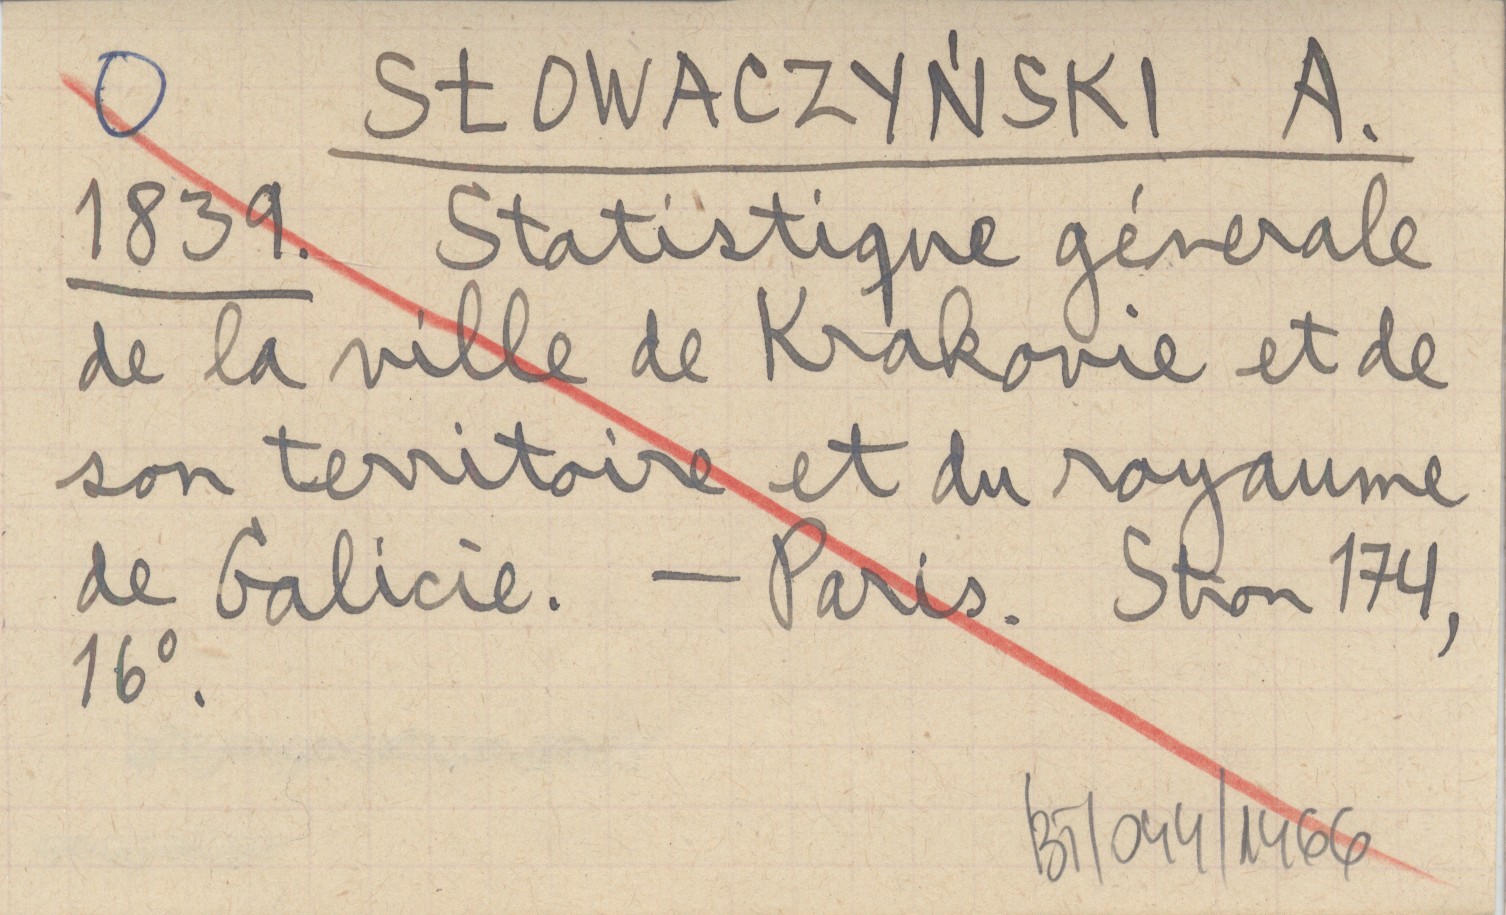 O SŁOWACZYŃSKI A.
1839. Statistique génerale
de la ville de Krakovie et de
son territoire et du royaume
de Galicie. — Paris. Stron 174,
16°.
BT/044/1466